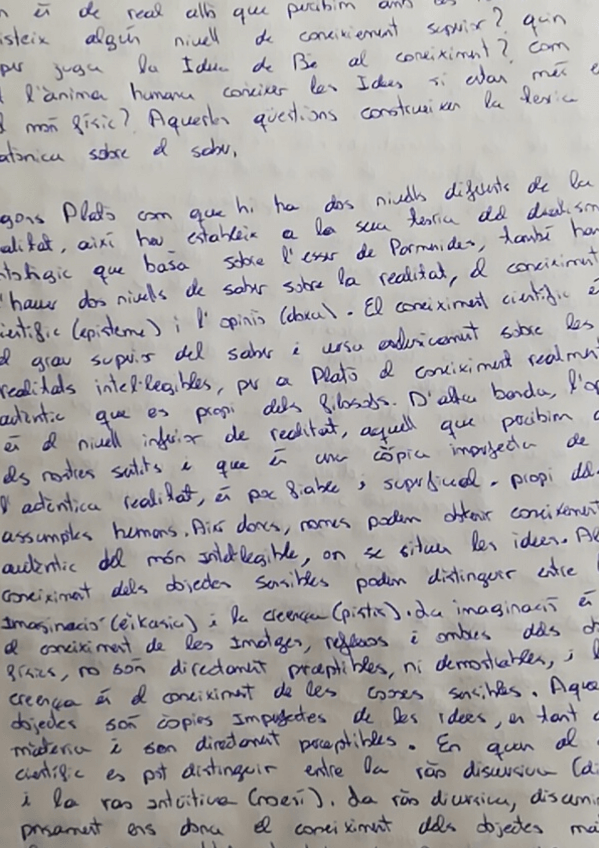 és de real allò que percibim amb
isteix algún nivell de coneixement superior? quin
per juga la Idea de Bé al coneixement? Com
l'ànima humana coneixer les Idees si estan més
món físic? Aquestes qüestions construeixen la teoria
atonica sobre el saber.
gons Plató com que hi ha dos nivells diferents de la
alitat, així ho estableix a la seva teoria del dualisme
ntologic que basa sobre l'esser de Parmenides, també han
d'haver dos nivells de saber sobre la realitat, el coneiximent
científic (episteme) i l'opinió (doxa). El coneiximent científic é
el grau superior del saber i versa exclusivament sobre les
realitats intel·legibles, per a Plató el coneiximent realment
autèntic que es propi dels filosofs. D'altra banda, l'op
és el nivell inferior de realitat, aquell que percibim a
dels nostres sentits i que és una còpia imperfecta de
l'autèntica realitat, és poc fiable i superficial. propi de
assumptes humans. Així doncs, nomes podem obtenir coneiximent
autèntic del món Intel·legible, on se situen les idees. Al
coneiximent dels objectes Sensibles podem distinguir entre
Imaginació (eikasia) i la creença (pistis). La imaginació és
el coneiximent de les Imatges, reflexos i ombres dels o
físics, no són directament preceptibles, ni demostrables, i l
creença és el coneiximet de les coses sensibles. Aque
objectes són còpies Imperfectes de les idees, en tant
matèria i son directament perceptibles. En quan al
científic es pot distinguir entre la raó discursiva (di
i la raó intuitiva (noesi). La raó dicursiva,
ens dona el coneiximent dels objectes ma